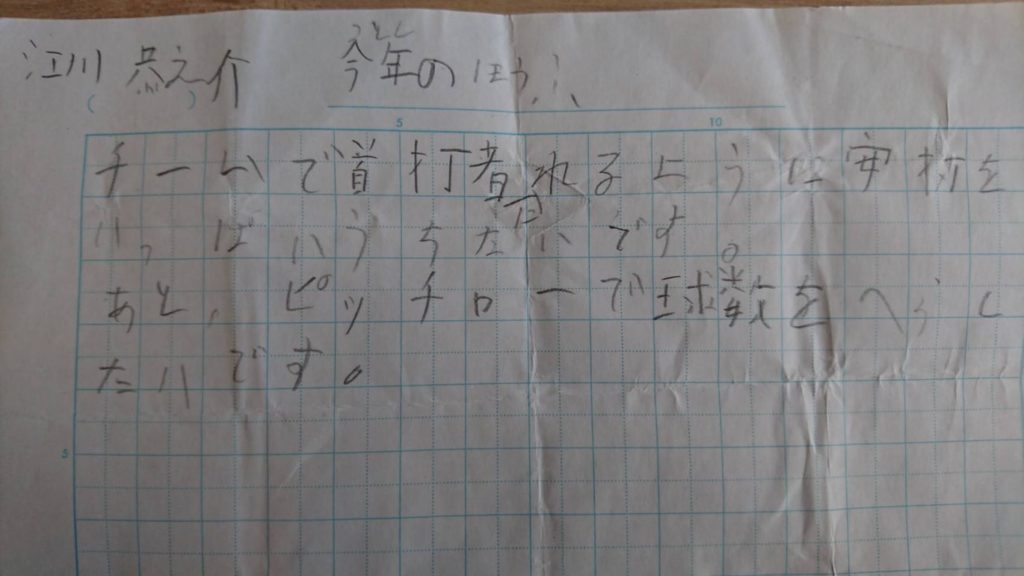 江川 恭之介 今年のほうふ
ことし
チームで首打者取るように安打を
いっぱいうちたいです。
あと、ピッチローで球数をへらし
たいです。
5
10
5